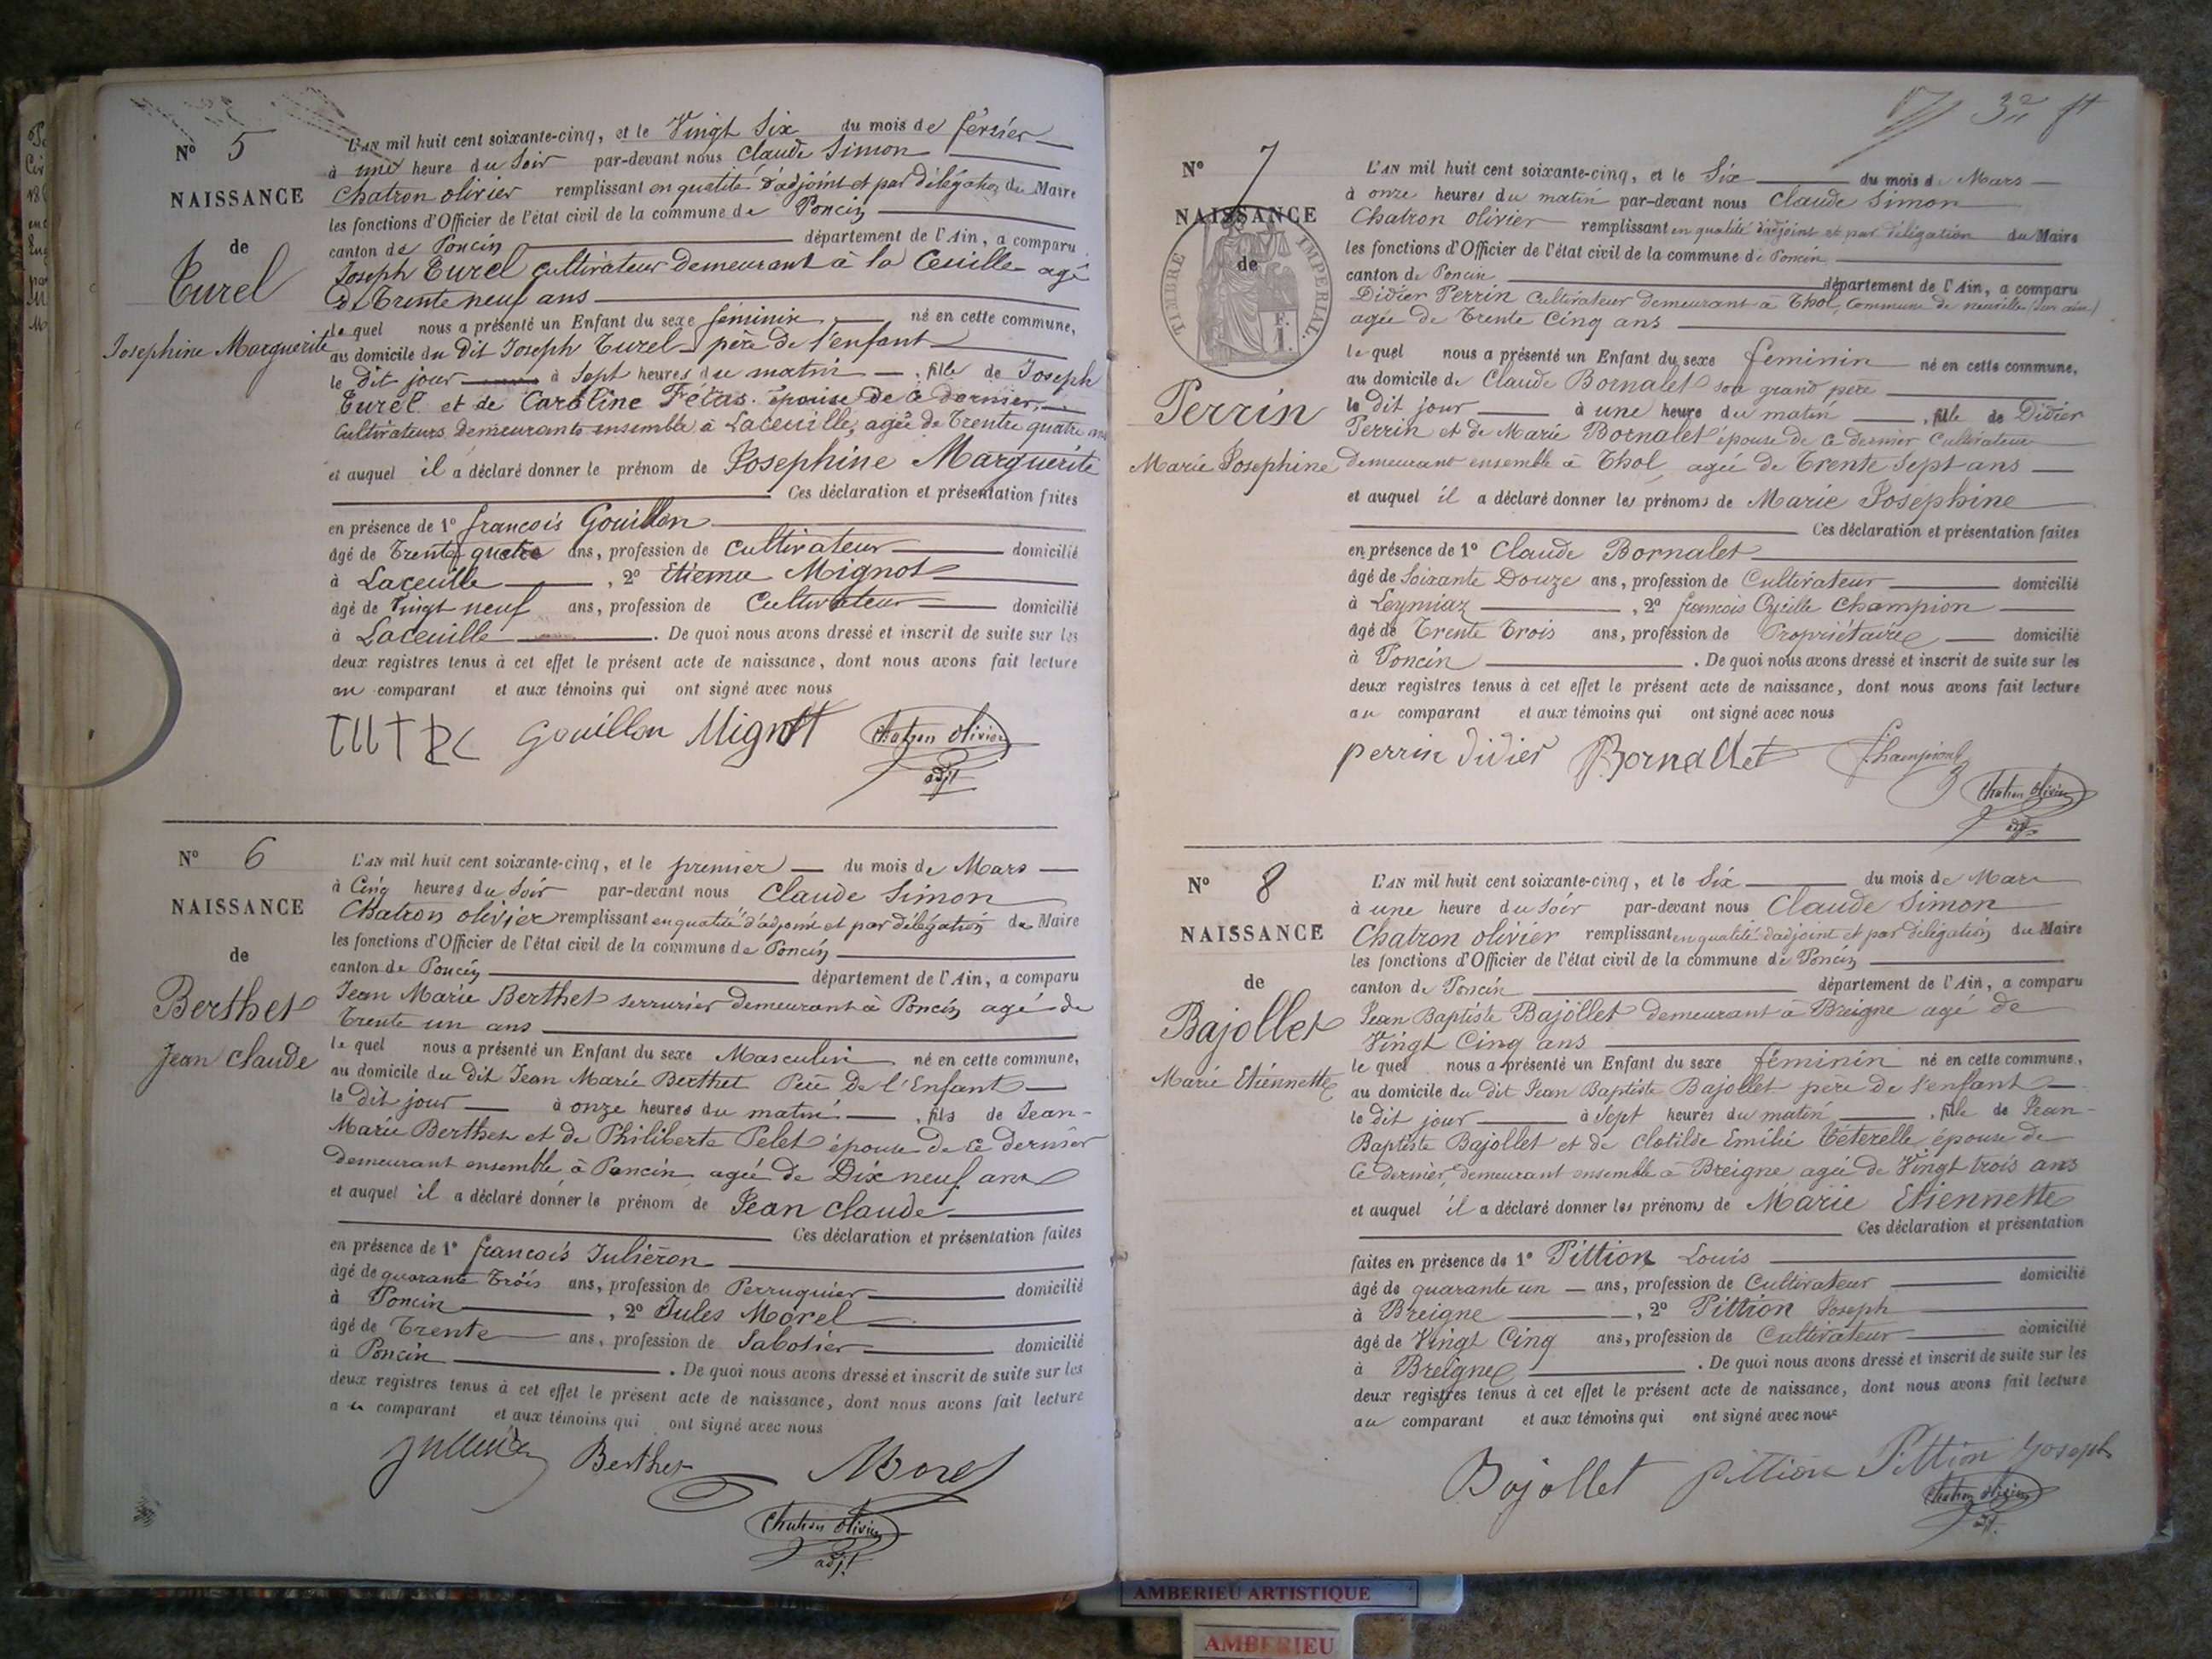 N° 5
NAISSANCE
de
Turel
Josephine Marguerite
L'AN mil huit cent soixante-cinq, et le Vingt Six du mois de février
à une heure du Soir par-devant nous Claude Simon
Chatron olivier remplissant en qualité d'adjoint et par délégation du Maire
les fonctions d'Officier de l'état civil de la commune de Poncin
canton de Poncin département de l'Ain, a comparu
Joseph Turel Cultivateur demeurant à la Ceuille agé
de Trente neuf ans
le quel nous a présenté un Enfant du sexe féminin né en cette commune,
au domicile du dit Joseph Turel père de l'enfant
le dit jour à Sept heures du matin, fille de Joseph
Turel et de Caroline Fétas épouse de ce dernier,
Cultivateurs demeurants ensemble à Laceuille, agée de Trente quatre ans
et auquel il a déclaré donner le prénom de Josephine Marguerite
Ces déclaration et présentation faites
en présence de 1° françois Gouillon
âgé de Trente quatre ans, profession de Cultivateur domicilié
à Laceuille, 2° Etienne Mignot
âgé de Vingt neuf ans, profession de Cultivateur domicilié
à Laceuille. De quoi nous avons dressé et inscrit de suite sur les
deux registres tenus à cet effet le présent acte de naissance, dont nous avons fait lecture
au comparant et aux témoins qui ont signé avec nous
Gouillon Mignot Chatron olivier
adjt
N° 6
NAISSANCE
de
Berthet
Jean Claude
L'AN mil huit cent soixante-cinq, et le premier du mois de Mars
à Cinq heures du Soir par-devant nous Claude Simon
Chatron olivier remplissant en qualité d'adjoint et par délégation du Maire
les fonctions d'Officier de l'état civil de la commune de Poncin
canton de Poncin département de l'Ain, a comparu
Jean Marie Berthet serrurier demeurant à Poncin agé de
Trente un ans
le quel nous a présenté un Enfant du sexe Masculin né en cette commune,
au domicile du dit Jean Marie Berthet Père De l'Enfant
le Dit jour à onze heures du matin, fils de Jean-
Marie Berthet et de Philiberte Pelet épouse de ce dernier
demeurant ensemble à Poncin agée de Dix neuf ans
et auquel il a déclaré donner le prénom de Jean Claude
Ces déclaration et présentation faites
en présence de 1° françois Juliéron
âgé de quarante Trois ans, profession de Perruquier domicilié
à Poncin, 2° Jules Morel
âgé de Trente ans, profession de Sabotier domicilié
à Poncin. De quoi nous avons dressé et inscrit de suite sur les
deux registres tenus à cet effet le présent acte de naissance, dont nous avons fait lecture
au comparant et aux témoins qui ont signé avec nous
Berthet Morel
Chatron olivier
adjt
N° 7
NAISSANCE
de
TIMBRE IMPERIAL
Perrin
Marie Josephine
L'AN mil huit cent soixante-cinq, et le Six du mois de Mars
à onze heures du matin par-devant nous Claude Simon
Chatron olivier remplissant en qualité d'adjoint et par délégation du Maire
les fonctions d'Officier de l'état civil de la commune de Poncin
canton de Poncin département de l'Ain, a comparu
Didier Perrin Cultivateur demeurant à Thol, Commune de neuville (sur ain)
agée de Trente Cinq ans
le quel nous a présenté un Enfant du sexe féminin né en cette commune,
au domicile de Claude Bornalet son grand père
le dit jour à une heure du matin, fille de Didier
Perrin et de Marie Bornalet épouse de ce dernier Cultivateur
demeurant ensemble à Thol, agée de Trente Sept ans
et auquel il a déclaré donner les prénoms de Marie Joséphine
Ces déclaration et présentation faites
en présence de 1° Claude Bornalet
âgé de Soixante Douze ans, profession de Cultivateur domicilié
à Leymiaz, 2° françois Cyrille Champion
âgé de Trente Trois ans, profession de Propriétaire domicilié
à Poncin. De quoi nous avons dressé et inscrit de suite sur les
deux registres tenus à cet effet le présent acte de naissance, dont nous avons fait lecture
au comparant et aux témoins qui ont signé avec nous
perrin didier Bornallet Champion
Chatron olivier
adjt
N° 8
NAISSANCE
de
Bajollet
Marie Etiennette
L'AN mil huit cent soixante-cinq, et le Six du mois de Mars
à une heure du Soir par-devant nous Claude Simon
Chatron olivier remplissant en qualité d'adjoint et par délégation du Maire
les fonctions d'Officier de l'état civil de la commune de Poncin
canton de Poncin département de l'Ain, a comparu
Jean Baptiste Bajollet demeurant à Breigne agé de
Vingt Cinq ans
le quel nous a présenté un Enfant du sexe féminin né en cette commune,
au domicile du dit Jean Baptiste Bajollet père de l'enfant
le dit jour à Sept heures du matin, fille de Jean-
Baptiste Bajollet et de Clotilde Emilie Téterelle épouse de
Ce dernier, demeurant ensemble à Breigne agée de Vingt trois ans
et auquel il a déclaré donner les prénoms de Marie Etiennette
Ces déclaration et présentation
faites en présence de 1° Pittion Louis
âgé de quarante un ans, profession de Cultivateur domicilié
à Breigne, 2° Pittion Joseph
âgé de Vingt Cinq ans, profession de Cultivateur domicilié
à Breigne. De quoi nous avons dressé et inscrit de suite sur les
deux registres tenus à cet effet le présent acte de naissance, dont nous avons fait lecture
au comparant et aux témoins qui ont signé avec nous
Bajollet pittion Pittion Joseph
Chatron olivier
adjt
AMBERIEU ARTISTIQUE
AMBERIEU